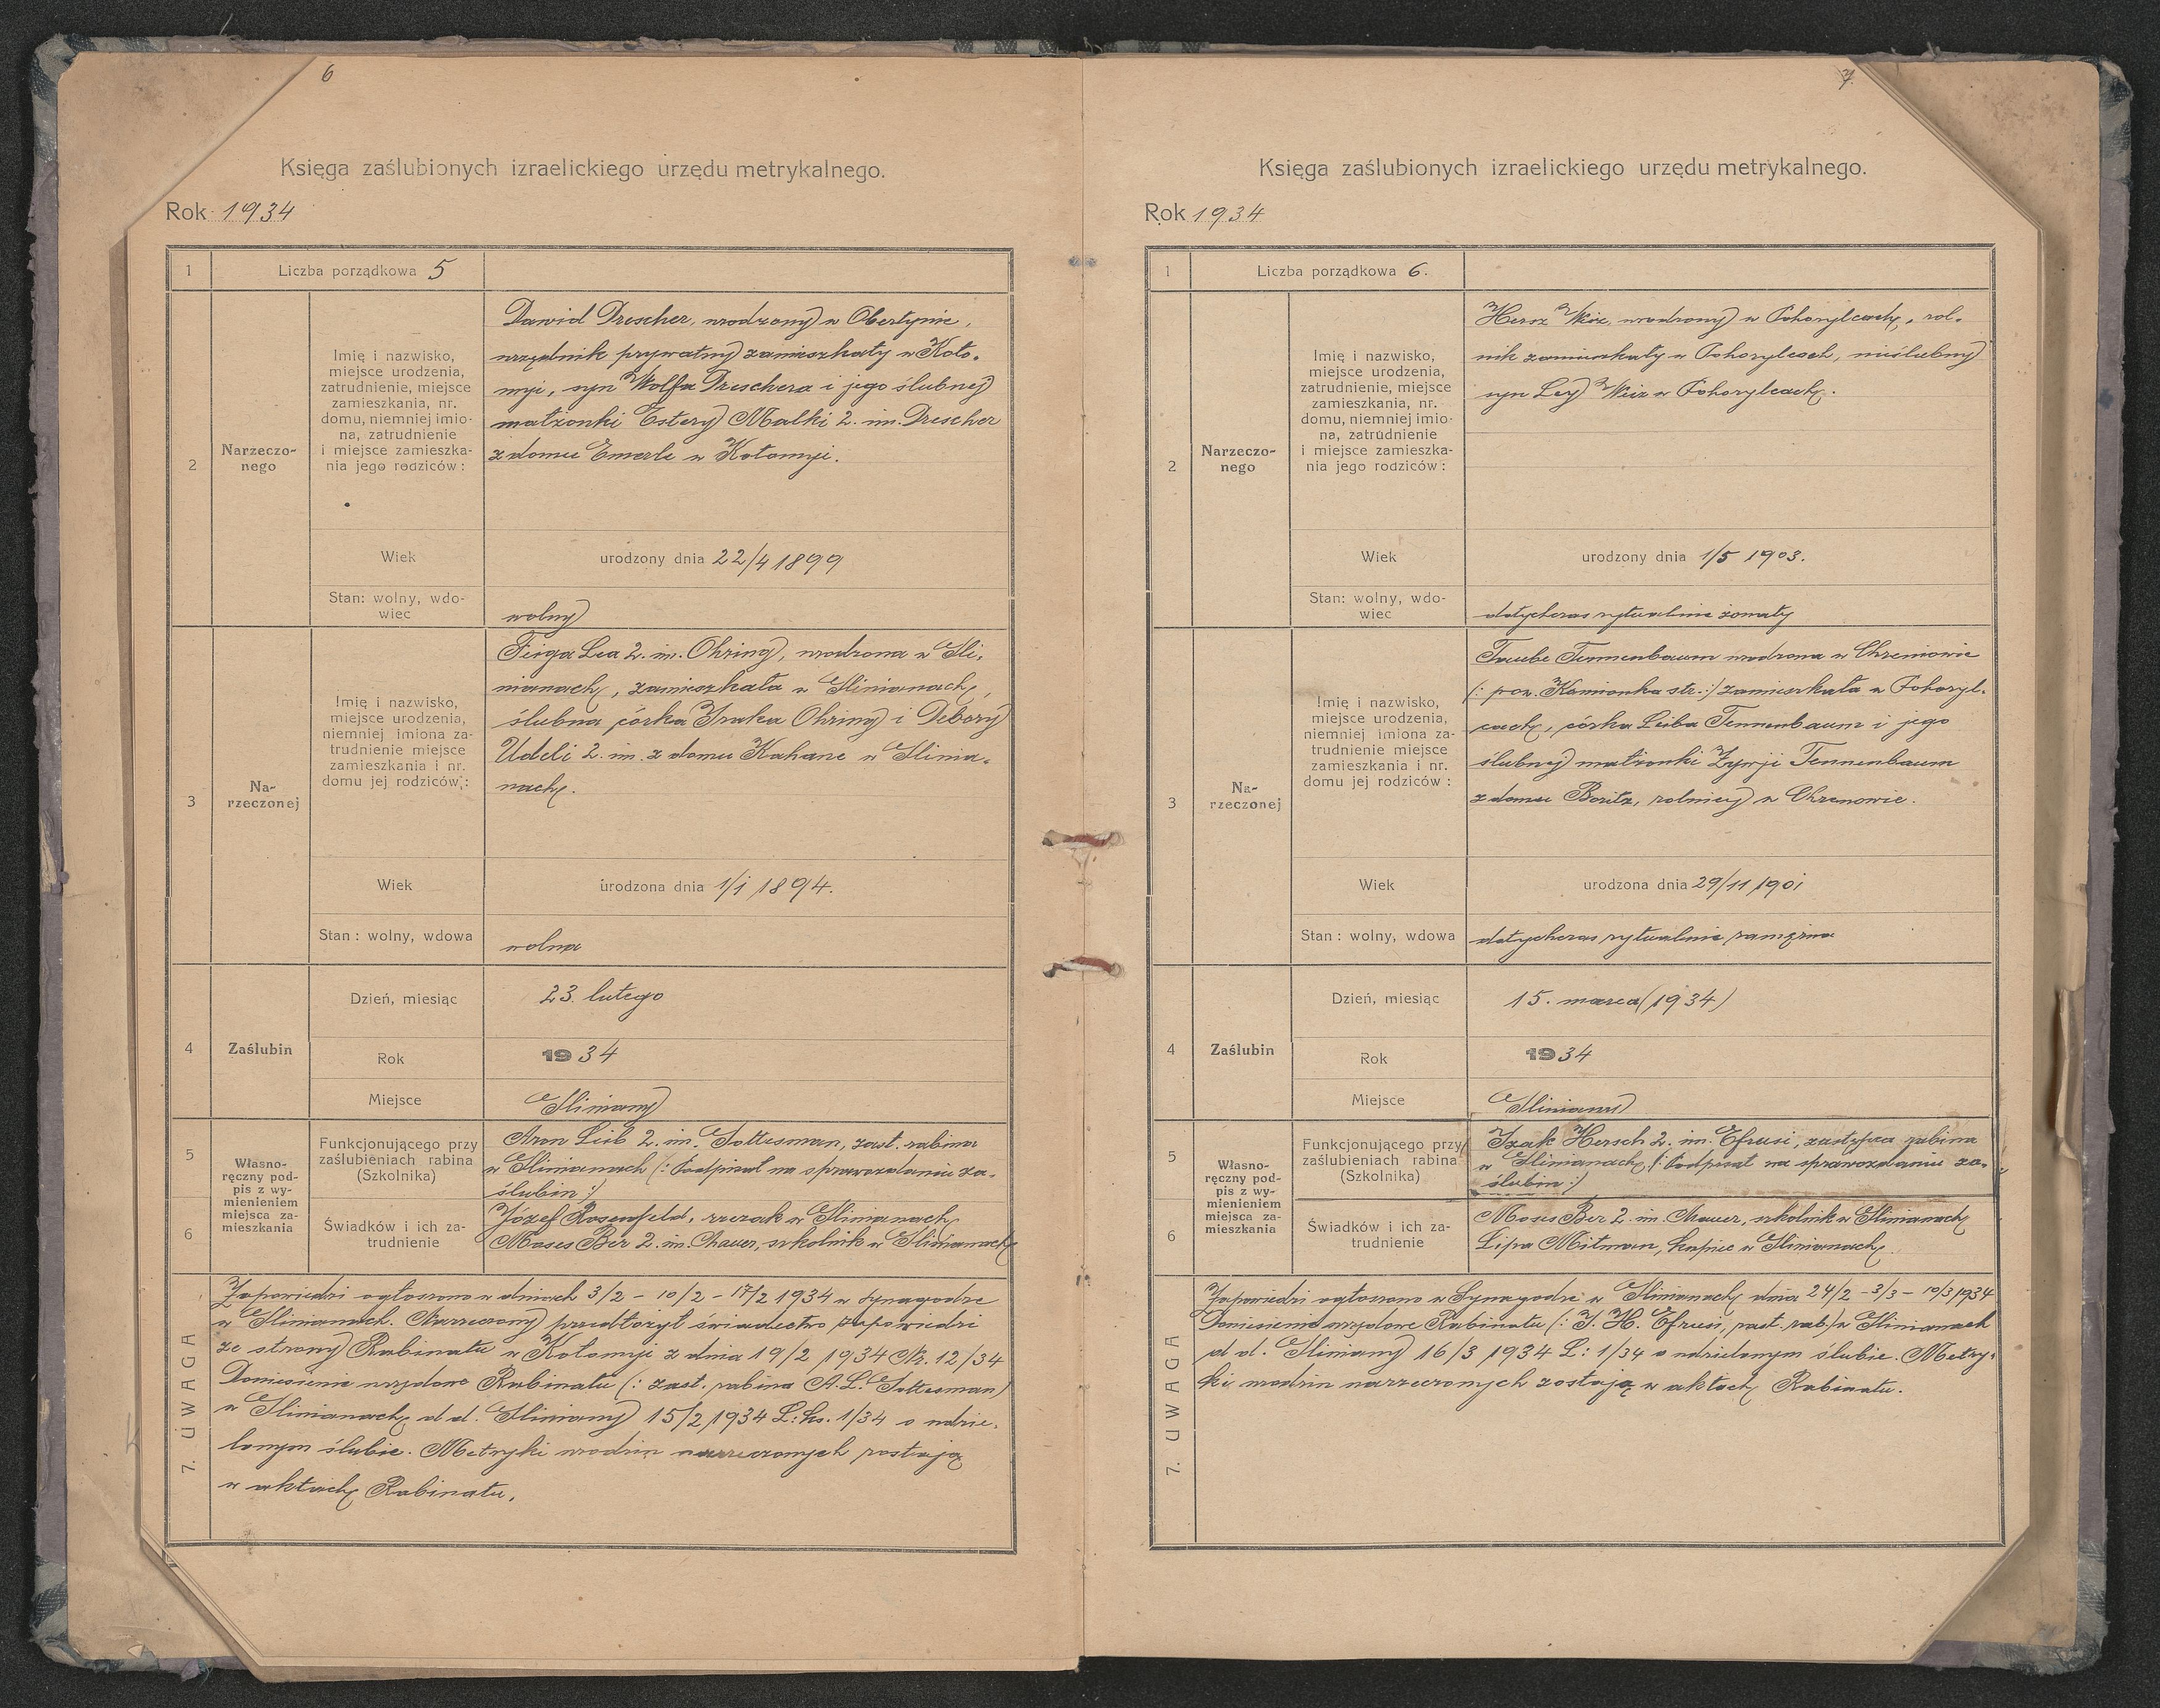 6
Księga zaślubionych izraelickiego urzędu metrykalnego.
Rok 1934
1 Liczba porządkowa 5
2
Narzeczo-
nego
Imię i nazwisko,
miejsce urodzenia,
zatrudnienie, miejsce
zamieszkania, nr.
domu, niemniej imio-
na, zatrudnienie
i miejsce zamieszka-
nia jego rodziców:
Dawid Drescher, urodzony w Obertynie,
urzędnik prywatny zamieszkały w Koło-
myi, syn Wolfa Dreschera i jego ślubnej
małżonki Estery Malki 2. im. Drescher
z domu Emerle w Kołomyji.
Wiek
urodzony dnia 22/4 1899
Stan: wolny, wdo-
wiec
wolny
3
Na-
rzeczonej
Imię i nazwisko,
miejsce urodzenia,
niemniej imiona za-
trudnienie miejsce
zamieszkania i nr.
domu jej rodziców:
Feiga Lea 2. im. Ohring, urodzona w Gli-
nianach, zamieszkała w Glinianach,
ślubna córka Izaka Ohring i Debory
Udeli 2. im. z domu Kahane w Glinia-
nach.
Wiek
urodzona dnia 1/1 1894.
Stan: wolny, wdowa
wolna
4
Zaślubin
Dzień, miesiąc
23. lutego
Rok
1934
Miejsce
Gliniany
5
Własno-
ręczny pod-
pis z wy-
mienieniem
miejsca za-
mieszkania
Funkcjonującego przy
zaślubieniach rabina
(Szkolnika)
Aron Leib 2. im. Soltesman, zast. rabina
w Glinianach (: Podpisał na sprawozdaniu za-
ślubin :)
6
Świadków i ich za-
trudnienie
Józef Rosenfeld, rzezak w Glinianach
Moses Ber 2. im. Mauer, szkolnik w Glinianach
7. UWAGA
Zapowiedzi ogłoszono w dniach 3/2 - 10/2 - 17/2 1934 w Synagodze
w Glinianach. Narzeczony przedłożył świadectwo zapowiedzi
ze strony Rabinatu w Kołomyji z dnia 19/2 1934 Nr. 12/34
Doniesienie urzędowe Rabinatu (: zast. rabina A. L. Soltesman)
w Glinianach d d. Gliniany 15/2 1934 L: ks. 1/34 o udzie-
lonym ślubie. Metryki urodzin narzeczonych zostają
w aktach Rabinatu.
7.
Księga zaślubionych izraelickiego urzędu metrykalnego.
Rok 1934
1 Liczba porządkowa 6.
2
Narzeczo-
nego
Imię i nazwisko,
miejsce urodzenia,
zatrudnienie, miejsce
zamieszkania, nr.
domu, niemniej imio-
na, zatrudnienie
i miejsce zamieszka-
nia jego rodziców:
Hersz Weiz, urodzony w Pohorylcach, rol-
nik zamieszkały w Pohorylcach, nieślubny
syn Ley Weiz w Pohorylcach.
Wiek
urodzony dnia 1/5 1903.
Stan: wolny, wdo-
wiec
dotychczas rytualnie żonaty
3
Na-
rzeczonej
Imię i nazwisko,
miejsce urodzenia,
niemniej imiona za-
trudnienie miejsce
zamieszkania i nr.
domu jej rodziców:
Taube Tennenbaum urodzona w Chreniowie
(: pow. Kamionka str. :) zamieszkała w Pohoryl-
cach, córka Leiba Tennenbaum i jego
ślubnej małżonki Zywji Tennenbaum
z domu Boritz, rolnicy w Chrenowie.
Wiek
urodzona dnia 29/11 1901
Stan: wolny, wdowa
dotychczas rytualnie zamężna
4
Zaślubin
Dzień, miesiąc
15. marca (1934)
Rok
1934
Miejsce
Gliniany
5
Własno-
ręczny pod-
pis z wy-
mienieniem
miejsca za-
mieszkania
Funkcjonującego przy
zaślubieniach rabina
(Szkolnika)
Izak Hersch 2. im. Efrusi, zastępca rabina
w Glinianach (: Podpisał na sprawozdaniu za-
ślubin :)
6
Świadków i ich za-
trudnienie
Moses Ber 2. im. Mauer, szkolnik w Glinianach
Lipa Mitman, kupiec w Glinianach
7. UWAGA
Zapowiedzi ogłoszono w Synagodze w Glinianach dnia 24/2 - 3/3 - 10/3 1934
Doniesienie urzędowe Rabinatu (: I. H. Efrusi, zast. rab) w Glinianach
d d. Gliniany 16/3 1934 L: 1/34 o udzielonym ślubie. Metry-
ki urodzin narzeczonych zostają w aktach Rabinatu.